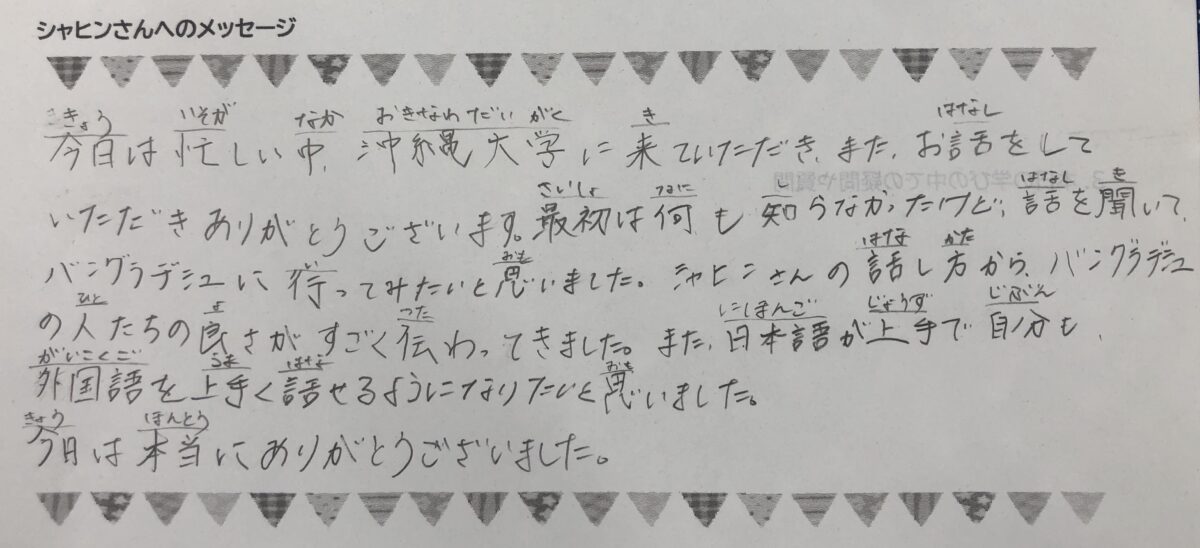 シャヒンさんへのメッセージ
きょう いそが なか おきなわだい がく き はなし
今日は忙しい中、沖縄大学に来ていただき、また、お話をして
さいしょ なに し はなし き
いただきありがとうございます。最初は何も知らなかったけど、話を聞いて、
い おも はな かた
バングラデシュに行ってみたいと思いました。シャヒンさんの話し方から、バングラデシュ
ひと よ つた にほんご じょうず じぶん
の人たちの良さがすごく伝わってきました。また、日本語が上手で自分も、
がいこくご うま はな おも
外国語を上手く話せるようになりたいと思いました。
きょう ほんとう
今日は本当にありがとうございました。